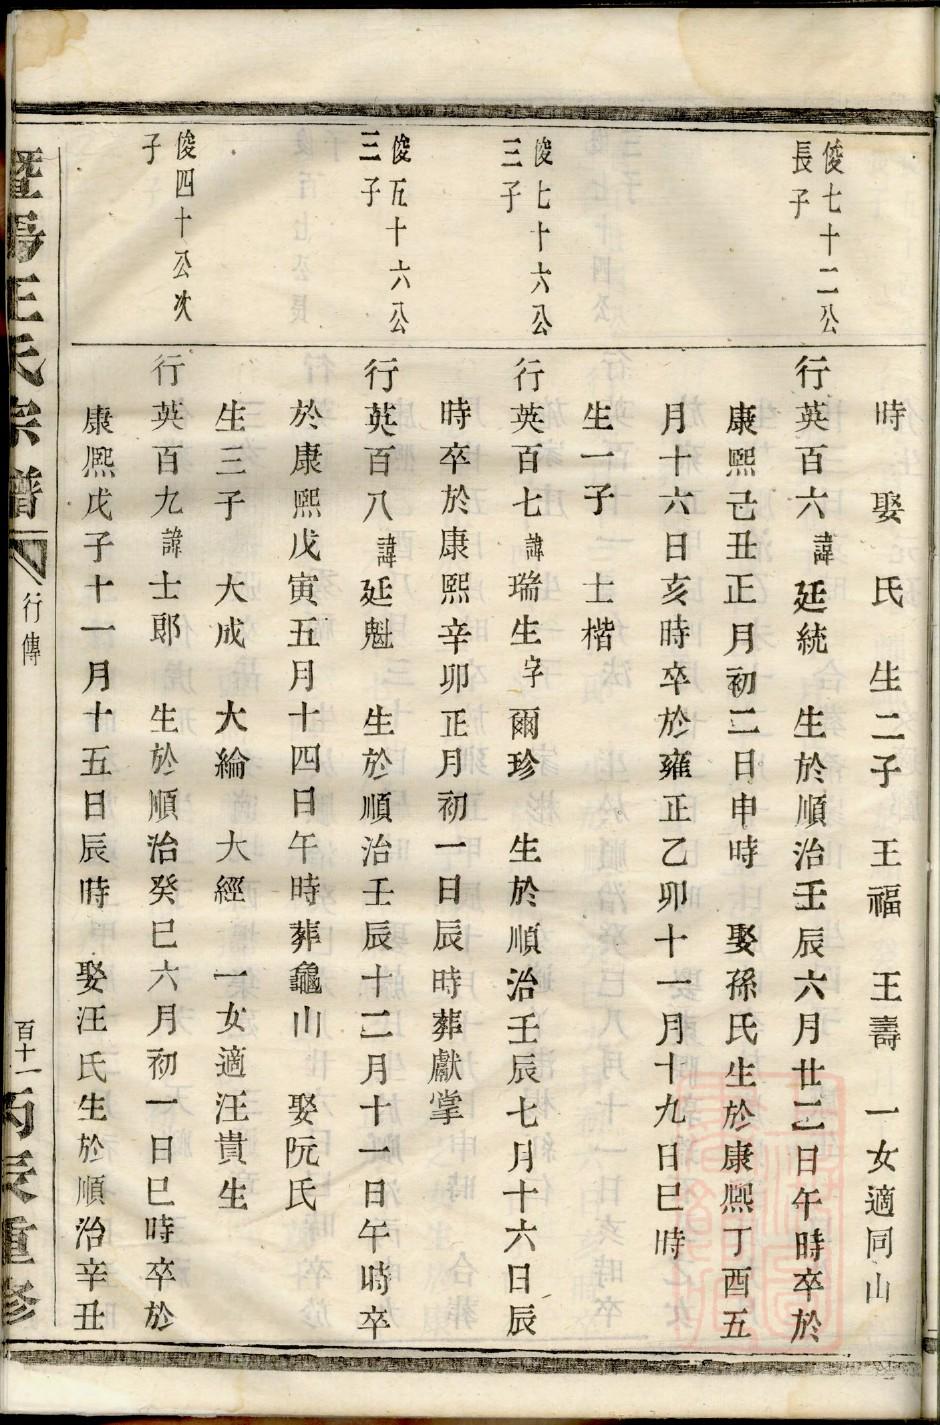 時　娶　氏　生二子　王福　王壽　一女適同山
俊七十二公
長子
行英百六諱廷統　生於順治壬辰六月廿二日午時卒於
康熙己丑正月初二日申時　娶孫氏生於康熙丁酉五
月十六日亥時卒於雍正乙卯十一月十九日巳時
生一子　士楷
俊七十六公
三子
行英百七諱瑞生字爾珍　生於順治壬辰七月十六日辰
時卒於康熙辛卯正月初一日辰時葬獻掌
俊五十六公
三子
行英百八諱廷魁　生於順治壬辰十二月十一日午時卒
於康熙戊寅五月十四日午時葬龜山　娶阮氏
生三子　大成　大綸　大經　一女適汪貴生
俊四十公次
子
行英百九諱士郎　生於順治癸巳六月初一日巳時卒於
康熙戊子十一月十五日辰時　娶汪氏生於順治辛丑
暨陽王氏宗譜
行傳
百十一
丙辰重修